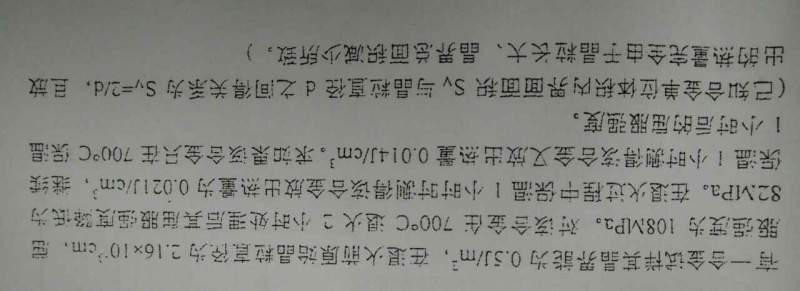 有一合金试样其晶界能为 0.5J/m³，在退火前原始晶粒直径为 2.16×10⁻³cm，屈
服强度为 108MPa。对该合金在 700℃ 退火 2 小时处理后其屈服强度降低为
82MPa。在退火过程中保温 1 小时时测得该合金放出热量为 0.021J/cm³，继续
保温 1 小时测得该合金又放出热量 0.014J/cm³。求如果该合金只在 700℃ 保温
1 小时后的屈服强度。
（已知合金单位体积内界面面积 Sᵥ 与晶粒直径 d 之间得关系为 Sᵥ=2/d，且放
出的热量完全由于晶粒长大、晶界总面积减少所致。）